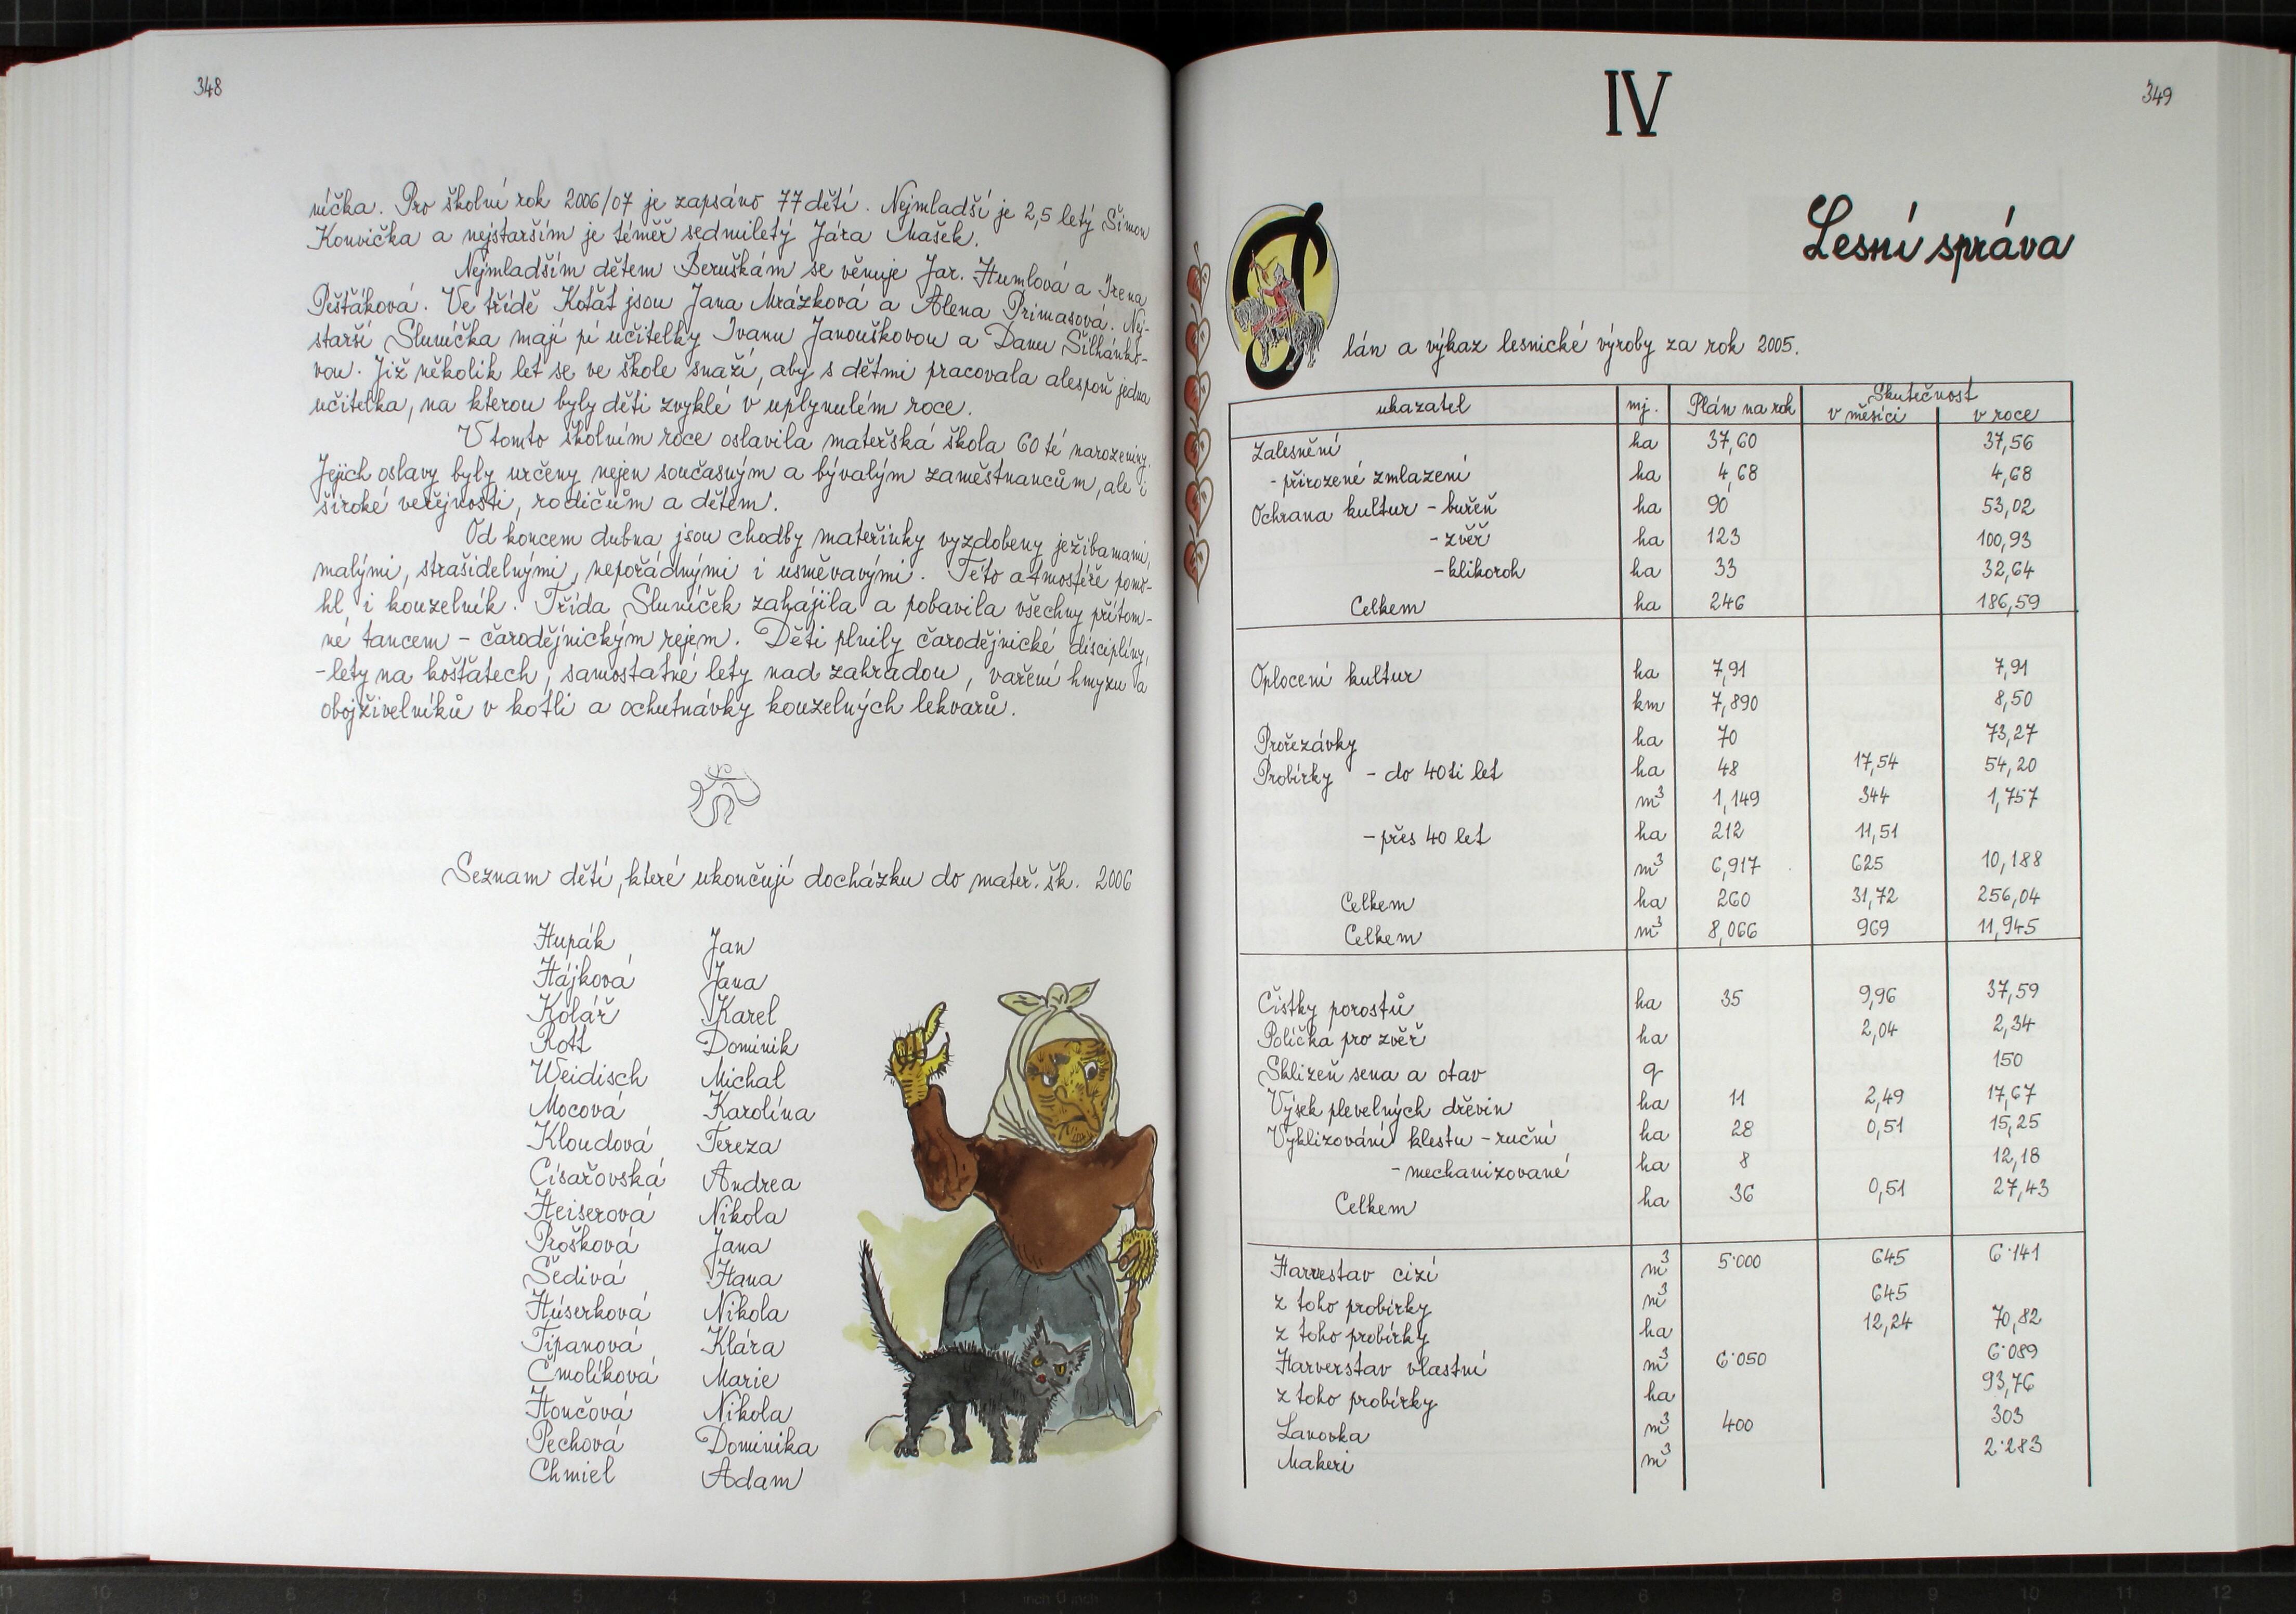 348
níčka. Pro školní rok 2006/07 je zapsáno 77 dětí. Nejmladší je 2,5 letý Šimon
Konvička a nejstarším je téměř sedmiletý Jára Mašek.
Nejmladším dětem Beruškám se věnuje Jar. Humlová a Irena
Pešťáková. Ve třídě Koťat jsou Jana Mrázková a Alena Primasová. Nej-
starší Sluníčka mají pí učitelky Ivanu Janouškovou a Danu Šilhánko-
vou. Již několik let se ve škole snaží, aby s dětmi pracovala alespoň jedna
učitelka, na kterou byly děti zvyklé v uplynulém roce.
V tomto školním roce oslavila mateřská škola 60té narozeniny.
Jejich oslavy byly určeny nejen současným a bývalým zaměstnancům, ale i
široké veřejnosti, rodičům a dětem.
Od koncem dubna jsou chodby mateřinky vyzdobeny ježibamami,
malými, strašidelnými, nepořádnými i usměvavými. Této atmosféře pomo-
hl i kouzelník. Třída Sluníček zahájila a pobavila všechny přítom-
né tancem - čarodějnickým rejem. Děti plnily čarodějnické disciplíny,
- lety na košťatech, samostatné lety nad zahradou, vaření hmyzu a
obojživelníků v kotli a ochutnávky kouzelných lekvarů.
Seznam dětí, které ukončují docházku do mateř. šk. 2006
Hupák Jan
Hájková Jana
Kolář Karel
Rott Dominik
Weidisch Michal
Mocová Karolína
Kloudová Tereza
Císařovská Andrea
Heiserová Nikola
Prošková Jana
Šedivá Hana
Húserková Nikola
Tipanová Klára
Čmolíková Marie
Hončová Nikola
Pechová Dominika
Chmiel Adam
349
IV
Lesní správa
Plán a výkaz lesnické výroby za rok 2005.
ukazatel mj. Plán na rok Skutečnost
v měsíci v roce
Zalesnění ha 37,60 37,56
- přirozené zmlazení ha 4,68 4,68
Ochrana kultur - buřeň ha 90 53,02
- zvěř ha 123 100,93
- klikoroh ha 33 32,64
Celkem ha 246 186,59
Oplocení kultur ha 7,91 7,91
km 7,890 8,50
Prořezávky ha 70 73,27
Probírky - do 40ti let ha 48 17,54 54,20
m³ 1,149 344 1,757
- přes 40 let ha 212 11,51
m³ 6,917 625 10,188
Celkem ha 260 31,72 256,04
Celkem m³ 8,066 969 11,945
Čistky porostů ha 35 9,96 37,59
Políčka pro zvěř ha 2,04 2,34
Sklizeň sena a otav q 150
Výsek plevelných dřevin ha 11 2,49 17,67
Vyklizování klestu - ruční ha 28 0,51 15,25
- mechanizované ha 8 12,18
Celkem ha 36 0,51 27,43
Harvestav cizí m³ 5·000 645 6·141
z toho probírky m³ 645
z toho probírky ha 12,24 70,82
Harverstav vlastní m³ 6·050 6·089
z toho probírky ha 93,76
Lanovka m³ 400 303
Makeri m³ 2·283
11 10 9 8 7 6 5 4 3 2 1 inch 0 inch 1 2 3 4 5 6 7 8 9 10 11 12